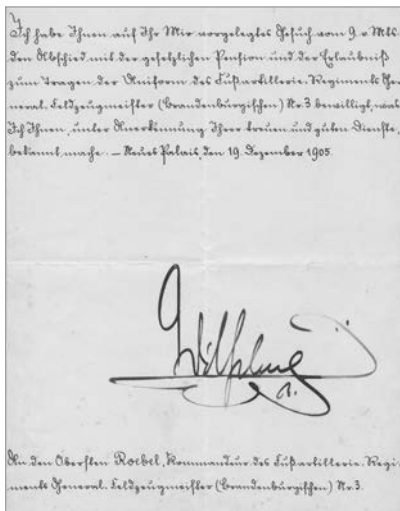 Ich habe Ihnen auf Ihr Mir vorgelegtes Gesuch vom 9. v. Mts.
den Abschied mit der gesetzlichen Pension und der Erlaubniß
zum Tragen der Uniform des Fußartillerie-Regiments Ge-
neral-Feldzeugmeister (Brandenburgischen) Nr. 3 bewilligt, was
Ich Ihnen, unter Anerkennung Ihrer treuen und guten Dienste,
bekannt mache. — Neues Palais, den 19. Dezember 1905.
Wilhelm
R.
An den Obersten Roebel, Kommandeur des Fußartillerie-Regi-
ments General-Feldzeugmeister (Brandenburgischen) Nr. 3.